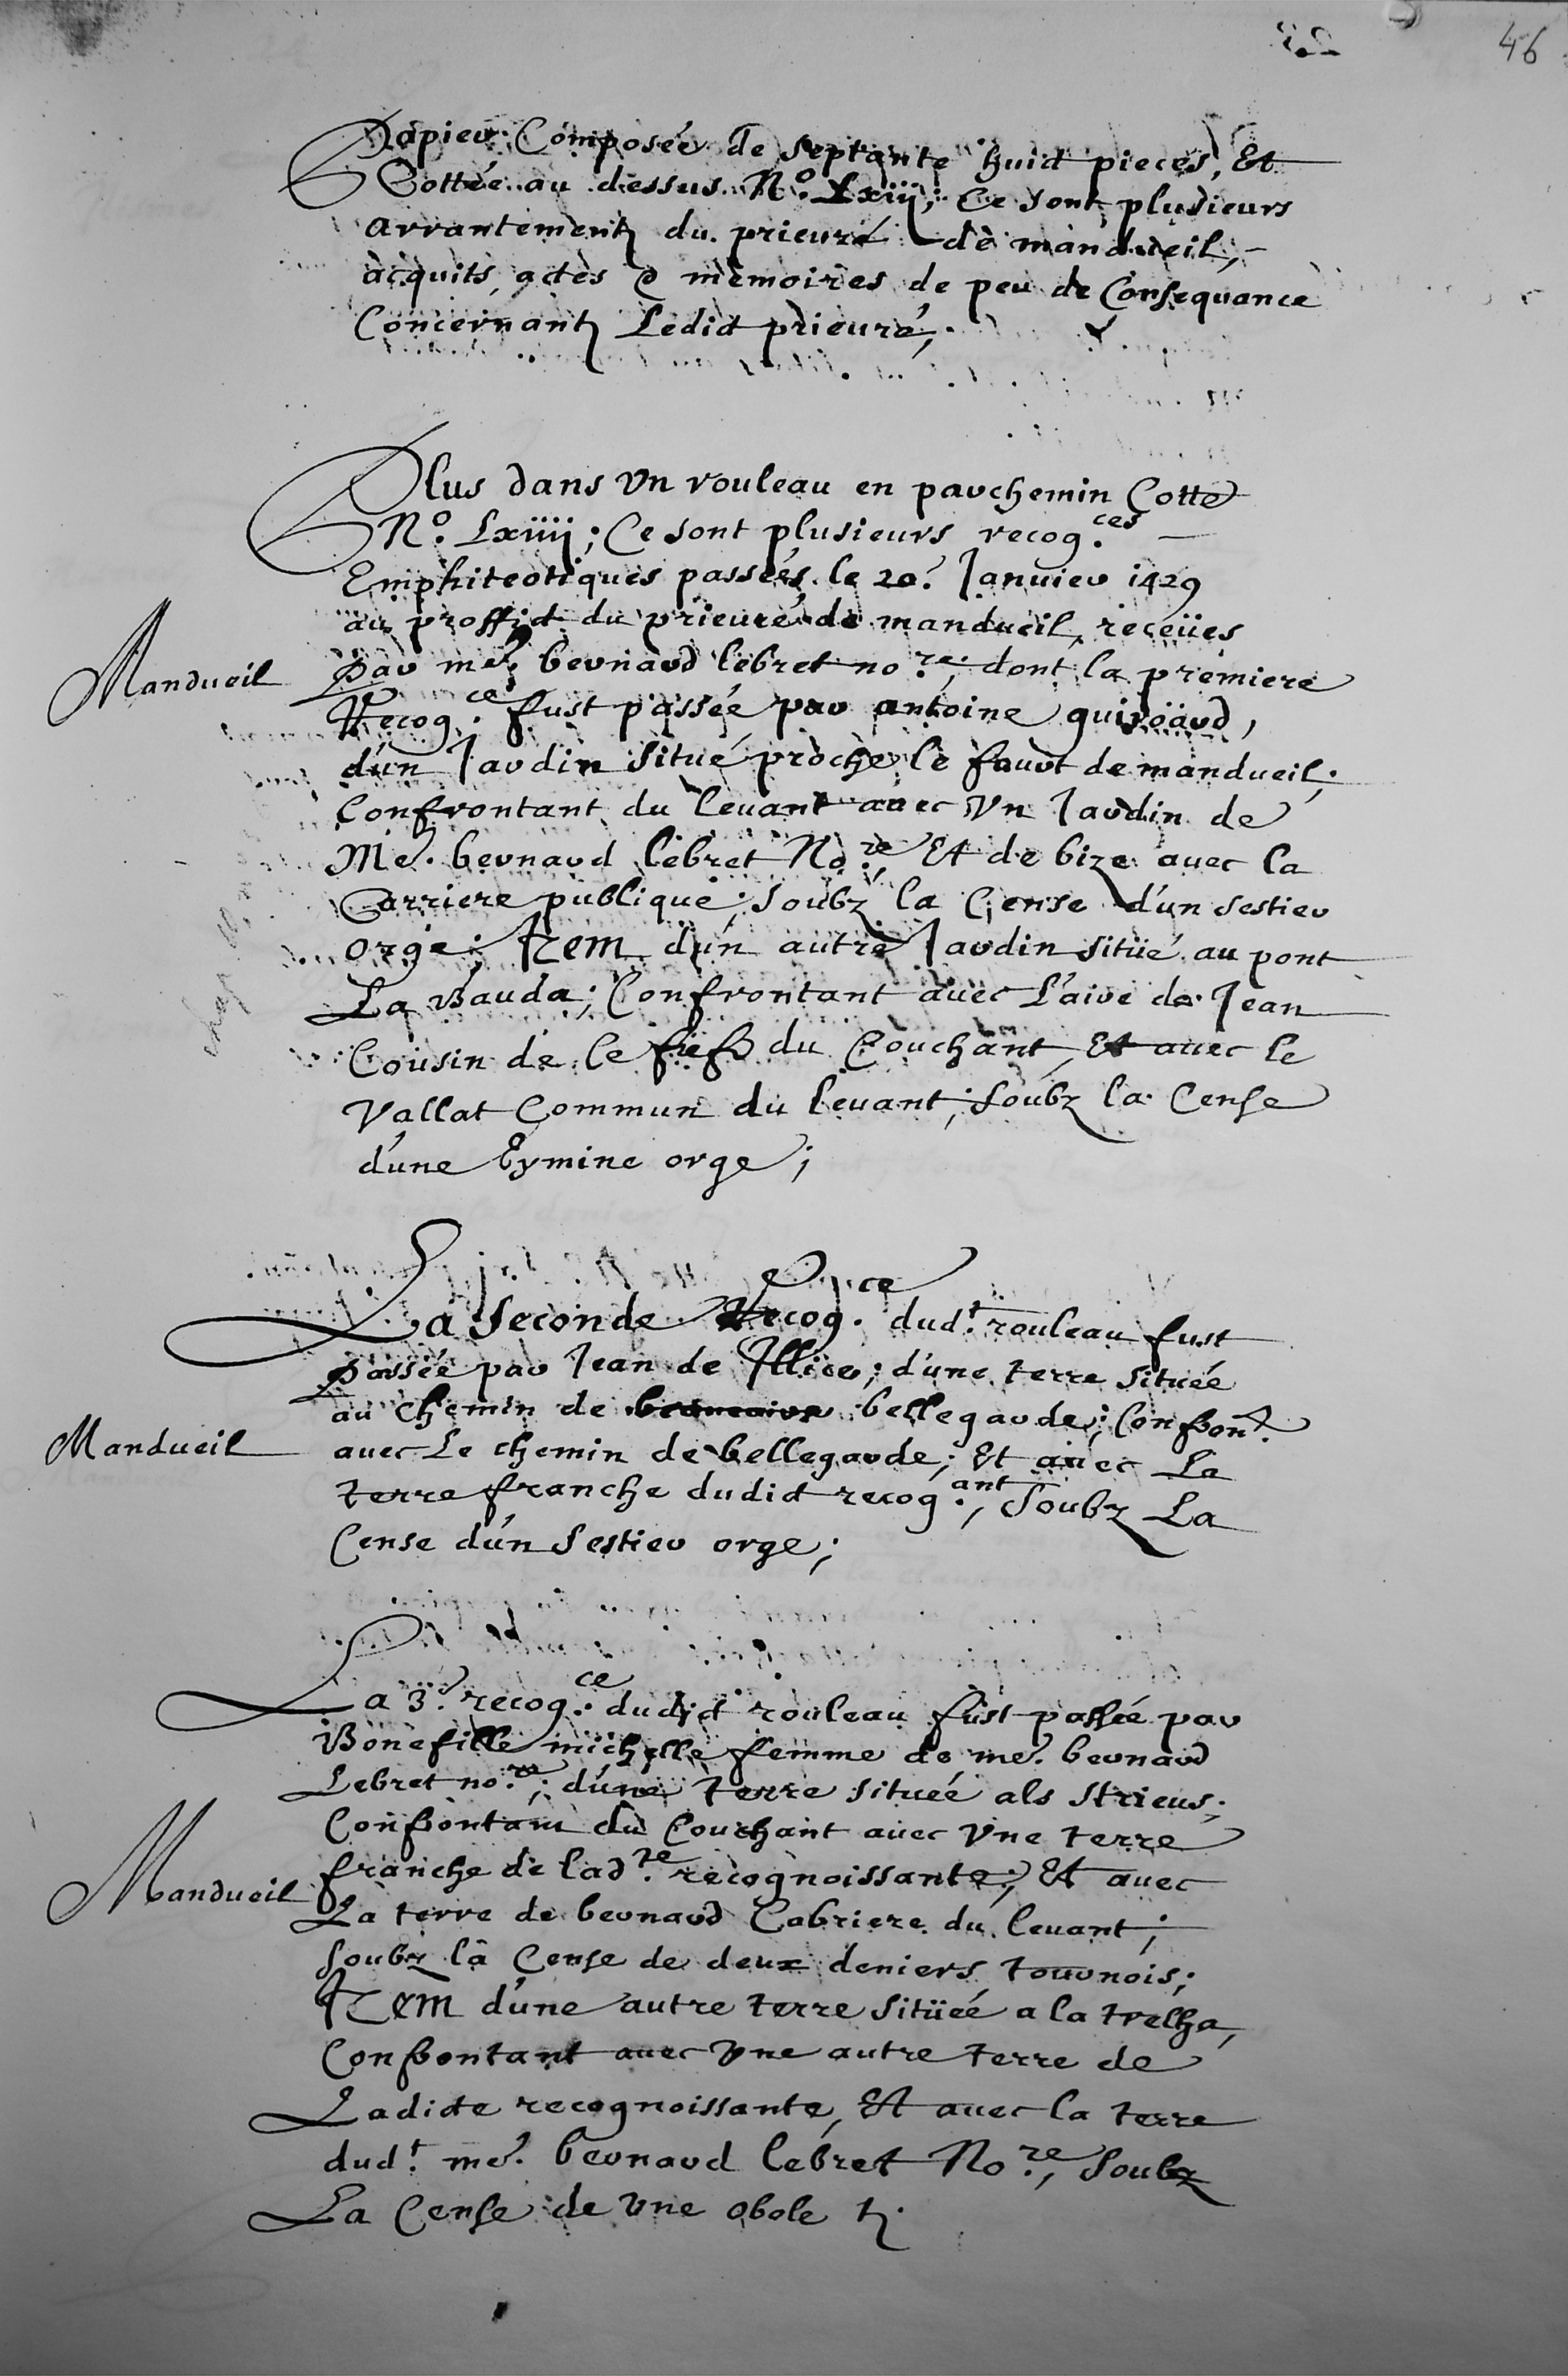 46
Papier Composée de septante huict pieces, Et
Cottée au dessus N.º Lxiij; Ce sont plusieurs
arrantementz du prieuré de mandueil,
acquits, actes & memoires de peu de Consequance
Concernantz Ledict prieuré,
Plus dans Vn rouleau en parchemin Cotté
N.º Lxiiij; Ce sont plusieurs recog.ces
Emphiteotiques passées le 20.e Januier 1429
au proffict du prieuré de mandueil, receües
Mandueil
par me. bernard lebret no.re, dont la premiere
Recog.ce fust passée par antoine guiroard,
d'un Jardin situé proche le fourt de mandueil;
Confrontant du leuant auec Vn Jardin de
Me. bernard lebret No.re, Et de bize auec la
Carriere publique; soubz la Cense d'un sestier
orge; Item d'un autre Jardin situé au pont
La Bauda; Confrontant auec L'aire de Jean
Cousin de le fiefz du Couchant, Et auec le
Vallat Commun du leuant; soubz la Cense
d'une Eymine orge;
La seconde Recog.ce dud.t rouleau fust
passée par Jean de Illice; d'une terre située
au chemin de bellegarde; Confront.
Mandueil
auec Le chemin de bellegarde; Et auec La
terre franche dudict recog.ant, soubz La
Cense d'un sestier orge;
La 3.e recog.ce dudict rouleau fust passée par
Bonefille michelle femme de me. bernard
Lebret no.re; d'une terre située als strieus;
Confrontant du Couchant auec Vne terre
Mandueil
franche de lad.te recognoissante; Et auec
La terre de bernard Cabriere du leuant;
soubz la Cense de deux deniers tournois;
Item d'une autre terre sitüée a la trelha,
Confrontant auec Vne autre terre de
Ladicte recognoissante, Et auec la terre
dud.t me. bernard lebret No.re, soubz
La Cense de Vne obole t.